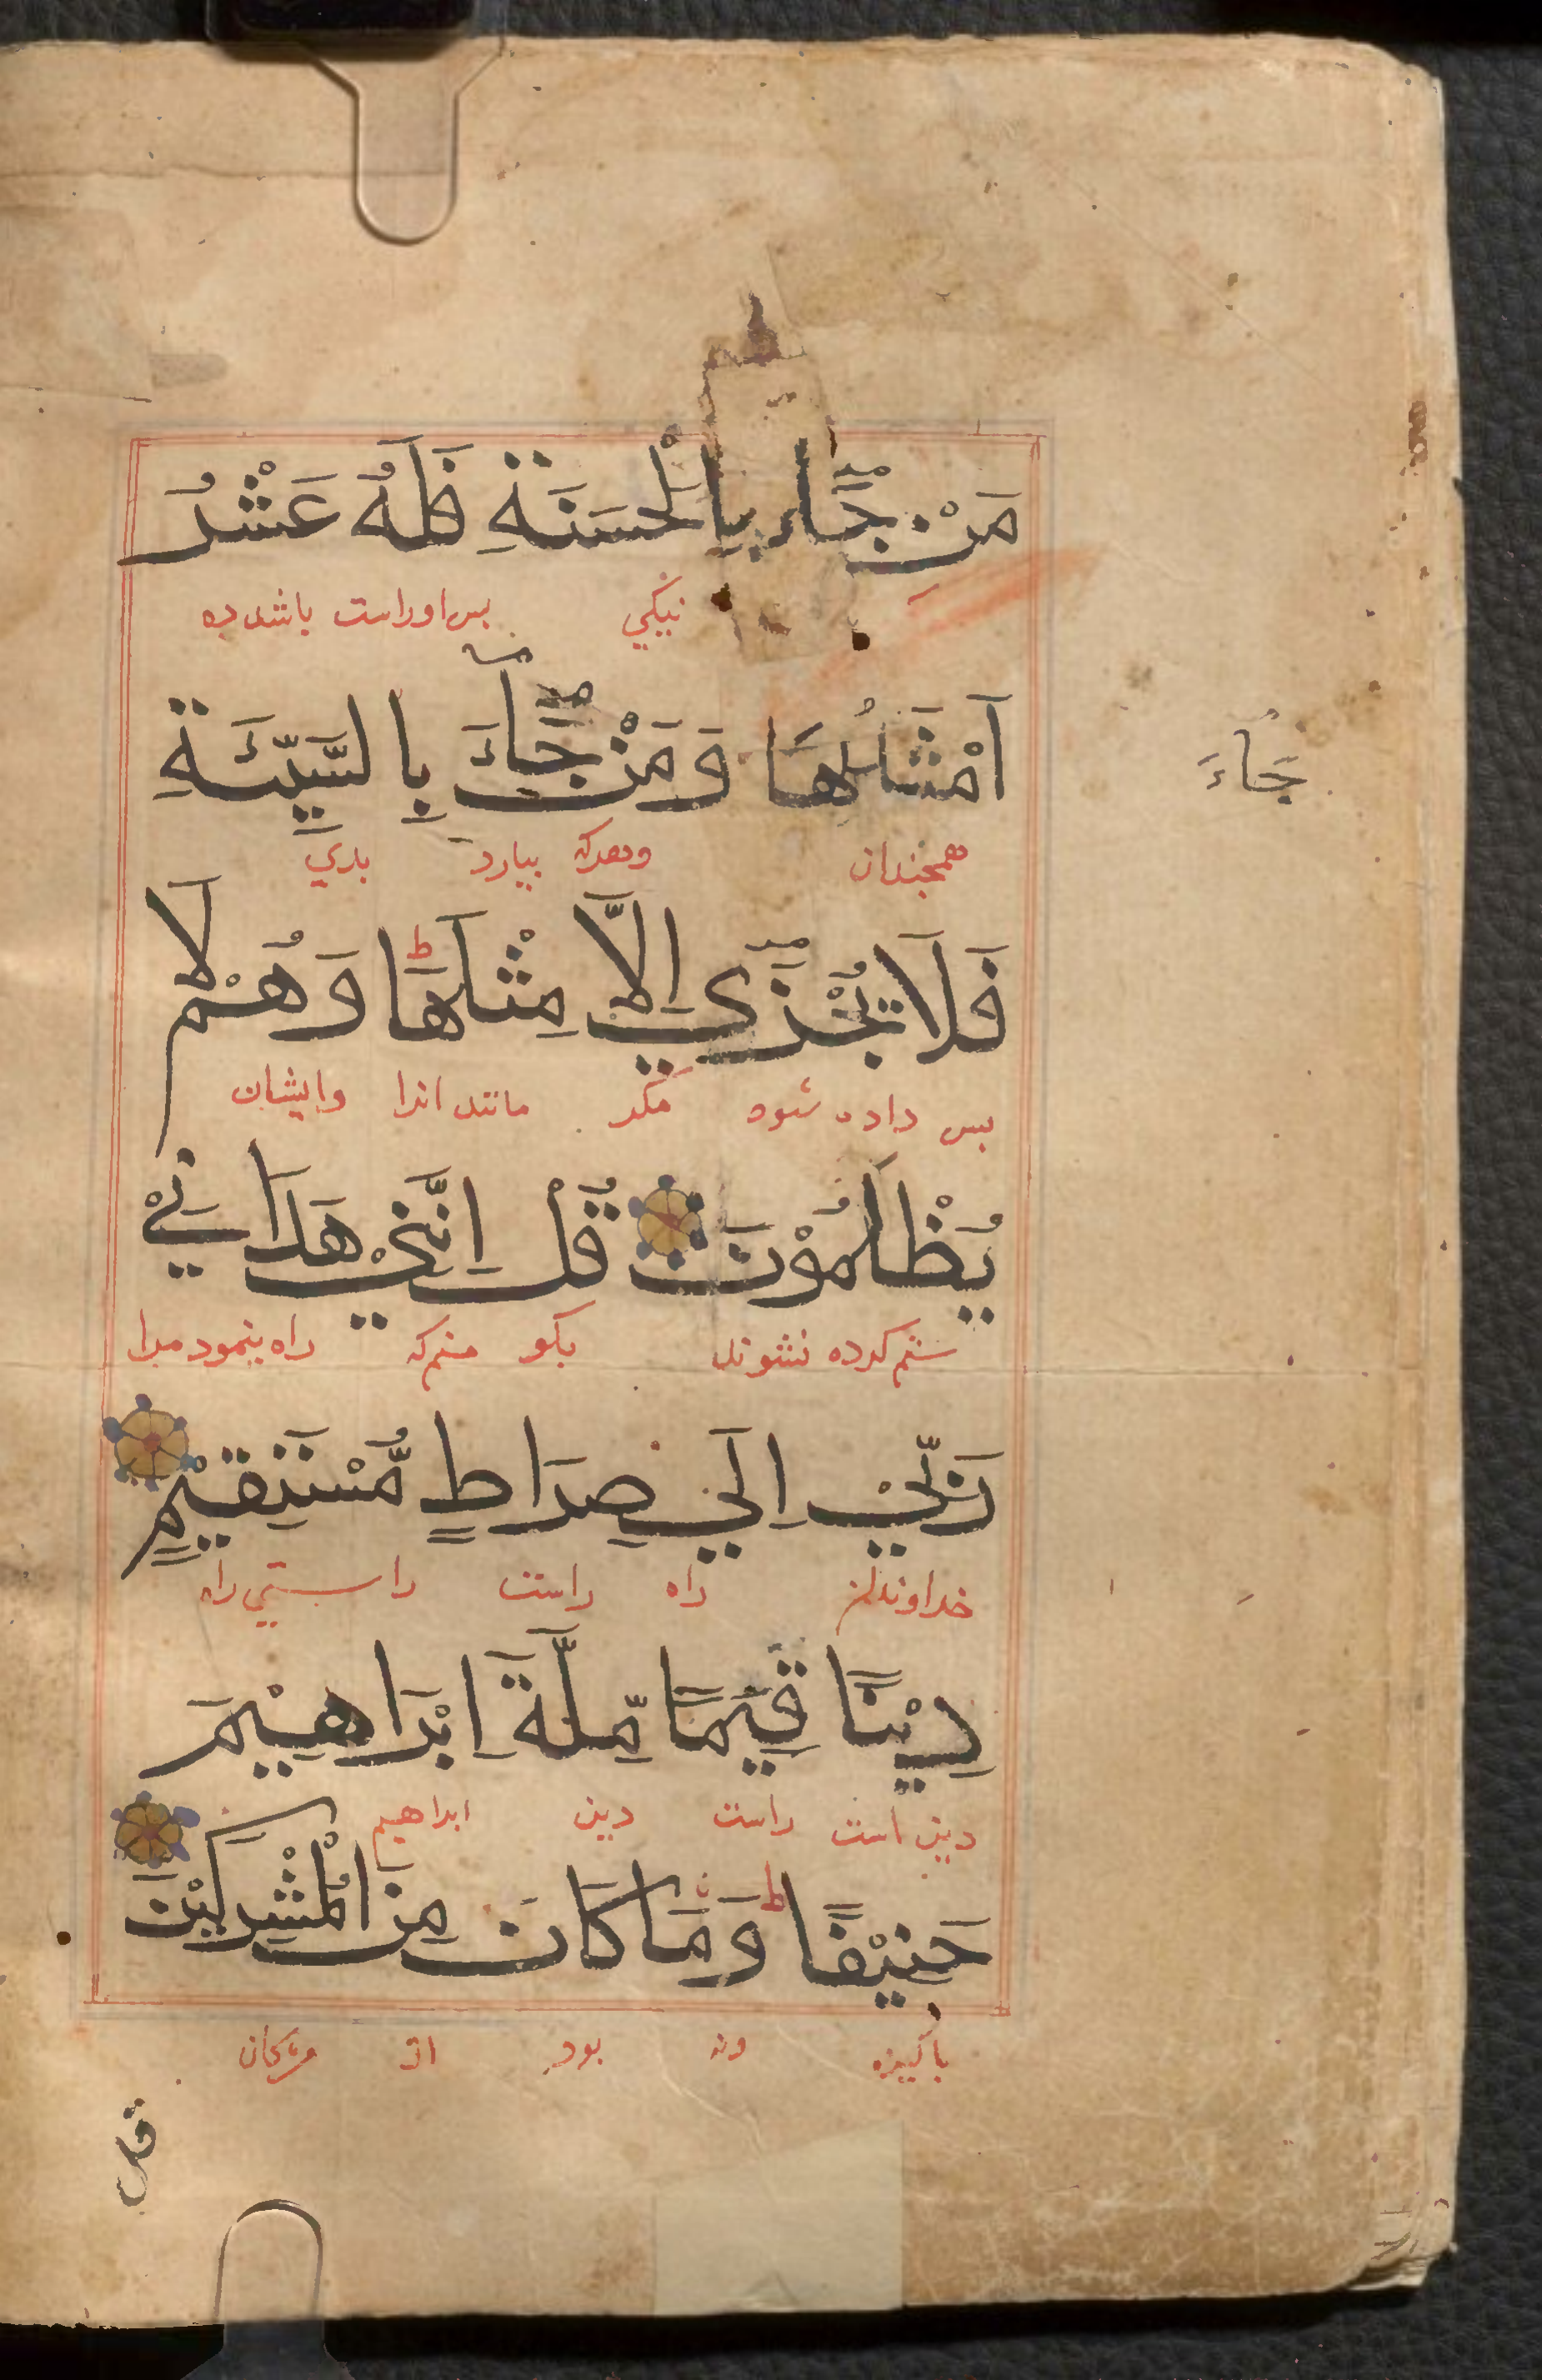 مَنْ جَّاءَ بِالْحَسَنَةِ فَلَهُ عَشْرُ
نیکي بس اوراست باشد ده
اَمْثَالُهَا وَمَنْ جَّاءَ بِالسَّيِّئَةِ
جَاءَ
همچندان وهركه بيارد بدي
فَلَا يُجْزَي اِلَّا مِثْلَهَا ط وَهُمْ لَا
بس داده شوه مكر مانند انرا وایشان
يُظْلَمُوْنَ قُلْ اِنَّنِيْ هَدَانِيْ
ستم كرده نشوند بكو منم كه راه بنمود مرا
رَبِّيْ اِلَي صِرَاطٍ مُّسْتَقِيْمٍ
راه راست راستي راه
دِيْنًا قِيَمًا مِّلَّةَ اِبْرَاهِيْمَ
دين است راست دين ابراهيم
حَنِيْفًا ط وَمَا كَانَ مِنَ الْمُشْرِكِيْنَ
باكيزه ونه بود از مشركان
قل